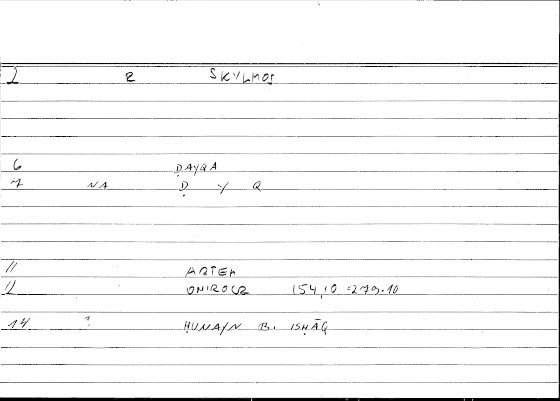 2 R SKYLMOS
6 ḌAYQA
7 NA Ḍ Y Q
11 ARTEM
12 ONIROCR 154,10 = 279.10
14 ? ḤUNAYN B. ISḤĀQ